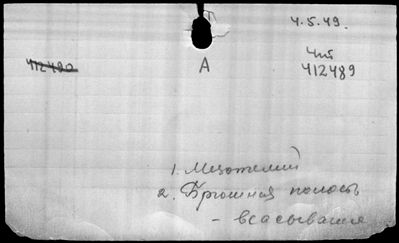 4.5.49.
Чт
412490
A
412489
1. Мезотелий
2. Брюшная полость
- всасывание